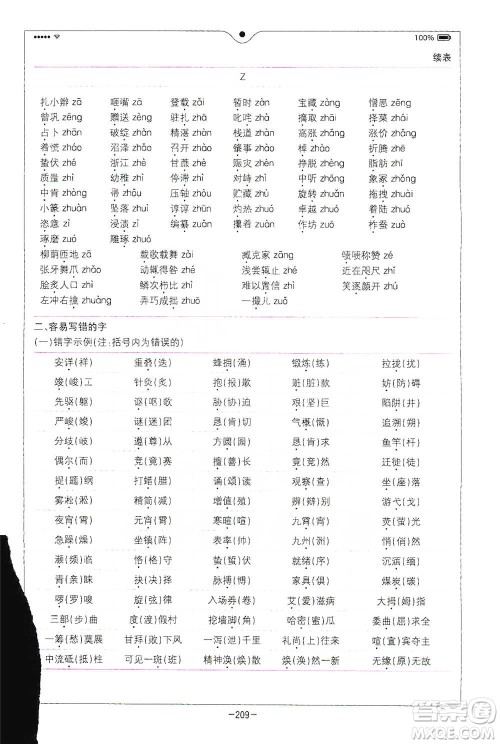 100%
续表
Z
扎小辫 zā 咂嘴 zā 登载 zǎi 暂时 zàn 宝藏 zàng 憎恶 zēng
曾巩 zēng 赠送 zèng 驻扎 zhā 叱咤 zhà 摘取 zhāi 择菜 zhái
占卜 zhān 破绽 zhàn 精湛 zhàn 栈道 zhàn 高涨 zhǎng 涨价 zhǎng
着慌 zháo 沼泽 zhǎo 召开 zhào 肇事 zhào 折腾 zhē 动辄 zhé
蛰伏 zhé 浙江 zhè 甄别 zhēn 赈灾 zhèn 挣脱 zhèng 脂肪 zhī
质量 zhì 幼稚 zhì 停滞 zhì 对峙 zhì 中听 zhōng 肿胀 zhǒng
中肯 zhòng 压轴 zhòu 贮藏 zhù 旋转 zhuàn 拖拽 zhuài
小篆 zhuàn 坠落 zhuì 谆谆 zhūn 灼热 zhuó 卓越 zhuó 着陆 zhuó
恣意 zì 浸渍 zì 编纂 zuǎn 着眼 zhuó 作坊 zuō 柞蚕 zuò
琢磨 zuó 雕琢 zhuó
柳荫匝地 zā 载歌载舞 zài 臧克家 zāng 啧啧称赞 zé
张牙舞爪 zhǎo 动辄得咎 zhé 浅尝辄止 zhé 近在咫尺 zhǐ
脍炙人口 zhì 鳞次栉比 zhì 难以置信 zhì 笑逐颜开 zhú
左冲右撞 zhuàng 弄巧成拙 zhuō 一撮儿 zuǒ
二、容易写错的字
(一)错字示例(注：括号内为错误的)
安详(祥) 重叠(迭) 蜂拥(涌) 锻炼(练) 拉拢(扰)
竣(峻)工 针灸(炙) 抱(报)歉 赃(脏)款 妨(防)碍
先驱(躯) 讴(呕)歌 胁(协)迫 艰(坚)巨 陷阱(井)
严峻(竣) 谜(迷)团 恳(肯)切 气概(慨) 追溯(朔)
分歧(岐) 遵(尊)从 方圆(园) 恳(肯)求 鱼竿(杆)
偶尔(而) 竞(竟)赛 擅(善)长 竟(竞)然 迁徙(徒)
提(题)纲 打蜡(腊) 诵(颂)读 观察(查) 坐(座)落
雾凇(淞) 精简(减) 增值(殖) 辨(辩)别 游弋(戈)
夜宵(霄) 元宵(霄) 寒暄(喧) 萤(荧)火 荧(萤)光
急躁(燥) 坐镇(阵) 表率(帅) 九州(洲) 悄(俏)然
濒(频)临 恪(格)守 蛰(蜇)伏 船舷(弦) 沉溺(弱)
青(亲)睐 抉(决)择 脉搏(博) 家具(俱) 煤炭(碳)
啰(罗)唆 旋(弦)律 入场券(卷) 艾(爱)滋病 大拇(姆)指
三部(步)曲 度(渡)假村 挖墙脚(角) 委曲(屈)求全
一筹(愁)莫展 甘拜(败)下风 一泻(泄)千里 礼尚(上)往来 喧(宣)宾夺主
中流砥(抵)柱 可见一斑(班) 精神涣(焕)散 焕(涣)然一新 无缘(原)无故
-209-